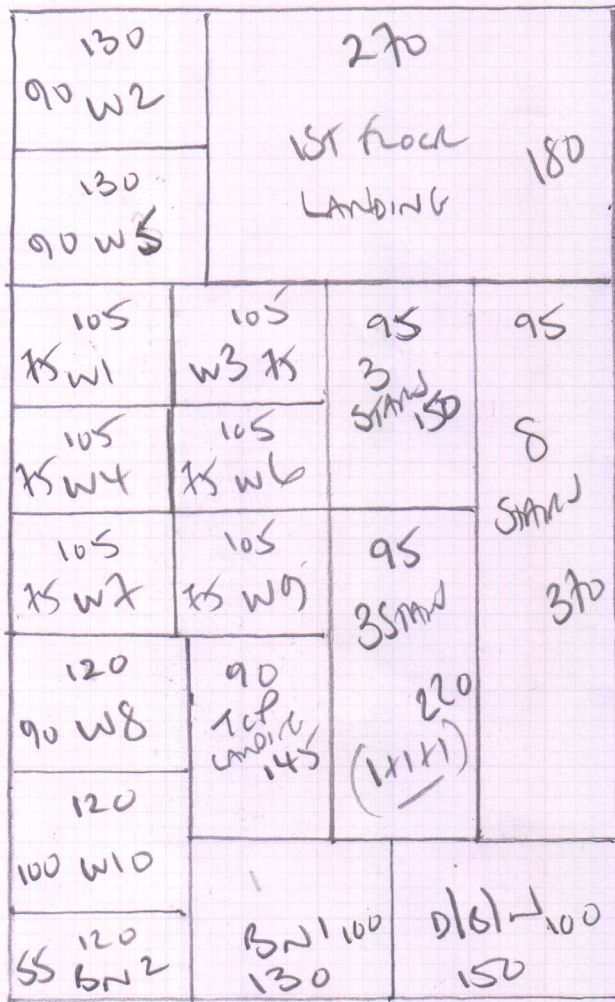 130
90 W2
270
1ST FLOOR
LANDING
180
130
90 W5
105
75 W1
105
W3 75
95
3
STAIRS 150
95
8
STAIRS
370
105
75 W4
105
75 W6
105
75 W7
105
75 W9
95
3 STAIRS
220
(1+1+1)
120
90 W8
90
TOP
LANDING
145
120
100 W10
120
55 BN2
BN1 100
130
100
150